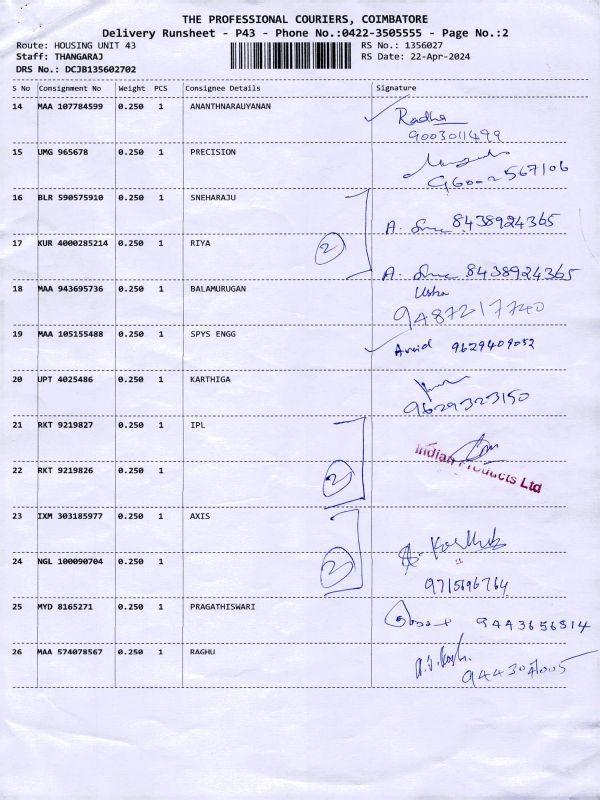 THE PROFESSIONAL COURIERS, COIMBATORE
Delivery Runsheet - P43 - Phone No.:0422-3505555 - Page No.:2
Route: HOUSING UNIT 43 RS No.: 1356027
Staff: THANGARAJ RS Date: 22-Apr-2024
DRS No.: DCJB135602702
S No Consignment No Weight PCS Consignee Details Signature
14 MAA 107784599 0.250 1 ANANTHNARAUYANAN Radha
9003011499
15 UMG 965678 0.250 1 PRECISION
16 BLR 590575910 0.250 1 SNEHARAJU
A. 8438924365
17 KUR 4000285214 0.250 1 RIYA 2
A. 8438924365
18 MAA 943695736 0.250 1 BALAMURUGAN Usha
9487217740
19 MAA 105155488 0.250 1 SPYS ENGG
9629409052
20 UPT 4025486 0.250 1 KARTHIGA
9629323150
21 RKT 9219827 0.250 1 IPL
Indian Products Ltd
22 RKT 9219826 0.250 1 2
23 IXM 303185977 0.250 1 AXIS
24 NGL 100090704 0.250 1 2
9715696764
25 MYD 8165271 0.250 1 PRAGATHISWARI 9443656814
26 MAA 574078567 0.250 1 RAGHU